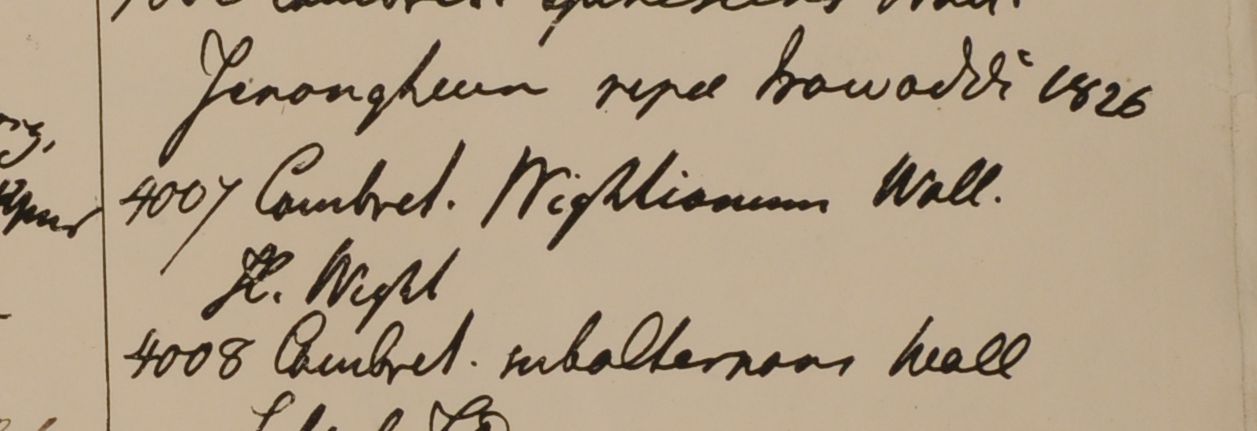 Jenangheun ripae Irawaddi 1826
4007 Combret. Wightianum Wall.
H. Wight
4008 Combret. subalternans Wall